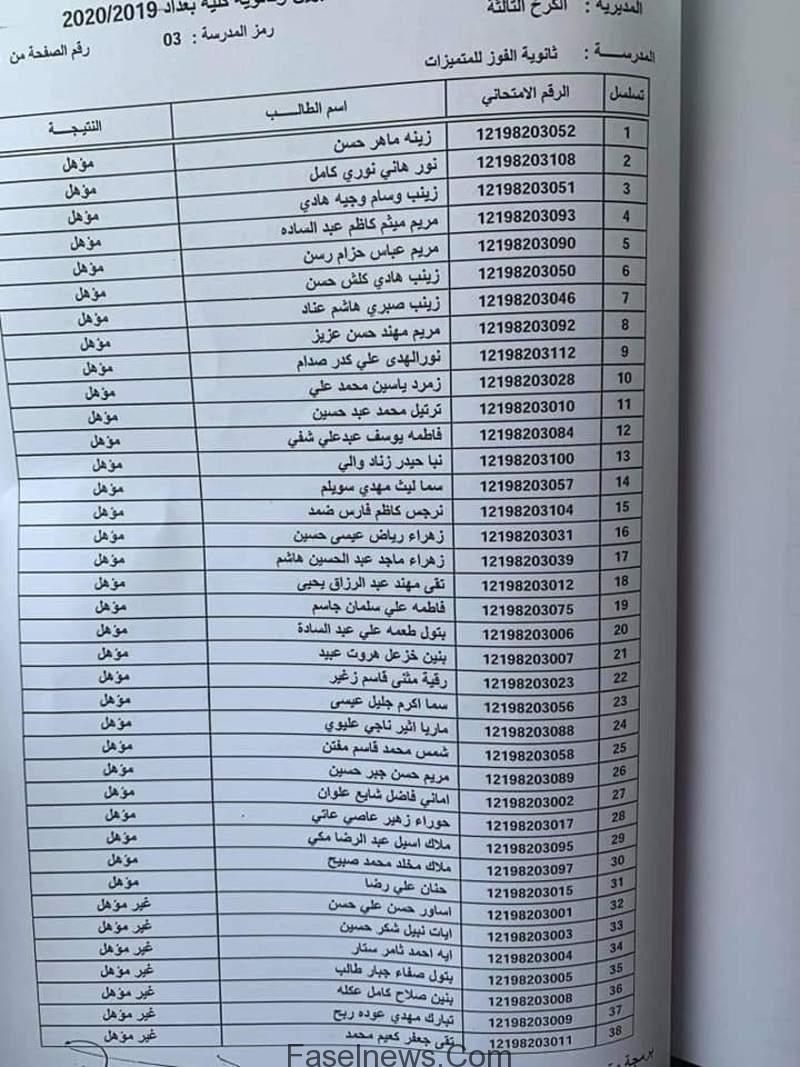 المديرية : الكرخ الثالثة
كلية بغداد 2020/2019
المدرســـة : ثانوية الفوز للمتميزات
رمز المدرسة : 03
رقم الصفحة من
تسلسل الرقم الامتحاني اسم الطالـــــب النتيجـــة
1 12198203052 زينه ماهر حسن مؤهل
2 12198203108 نور هاني نوري كامل مؤهل
3 12198203051 زينب وسام وجيه هادي مؤهل
4 12198203093 مريم ميثم كاظم عبد الساده مؤهل
5 12198203090 مريم عباس حزام رسن مؤهل
6 12198203050 زينب هادي كلش حسن مؤهل
7 12198203046 زينب صبري هاشم عناد مؤهل
8 12198203092 مريم مهند حسن عزيز مؤهل
9 12198203112 نورالهدى علي كدر صدام مؤهل
10 12198203028 زمرد ياسين محمد علي مؤهل
11 12198203010 ترتيل محمد عبد حسين مؤهل
12 12198203084 فاطمه يوسف عبدعلي شفي مؤهل
13 12198203100 نبا حيدر زناد والي مؤهل
14 12198203057 سما ليث مهدي سويلم مؤهل
15 12198203104 نرجس كاظم فارس ضمد مؤهل
16 12198203031 زهراء رياض عيسى حسين مؤهل
17 12198203039 زهراء ماجد عبد الحسين هاشم مؤهل
18 12198203012 تقى مهند عبد الرزاق يحيى مؤهل
19 12198203075 فاطمه علي سلمان جاسم مؤهل
20 12198203006 بتول طعمه علي عبد السادة مؤهل
21 12198203007 بنين خزعل هروت عبيد مؤهل
22 12198203023 رقية مثنى قاسم زغير مؤهل
23 12198203056 سما اكرم جليل عيسى مؤهل
24 12198203088 ماريا اثير ناجي عليوي مؤهل
25 12198203058 شمس محمد قاسم مفتن مؤهل
26 12198203089 مريم حسن جبر حسين مؤهل
27 12198203002 اماني فاضل شايع علوان مؤهل
28 12198203017 حوراء زهير عاصي عاتي مؤهل
29 12198203095 ملاك اسيل عبد الرضا مكي مؤهل
30 12198203097 ملاك مخلد محمد صبيح مؤهل
31 12198203015 حنان علي رضا مؤهل
32 12198203001 اساور حسن علي حسن غير مؤهل
33 12198203003 ايات نبيل شكر حسين غير مؤهل
34 12198203004 ايه احمد ثامر ستار غير مؤهل
35 12198203005 بتول صفاء جبار طالب غير مؤهل
36 12198203008 بنين صلاح كامل عكله غير مؤهل
37 12198203009 تبارك مهدي عوده ربح غير مؤهل
38 12198203011 تقى جعفر كعيم محمد غير مؤهل
برمجة
Faselnews.Com